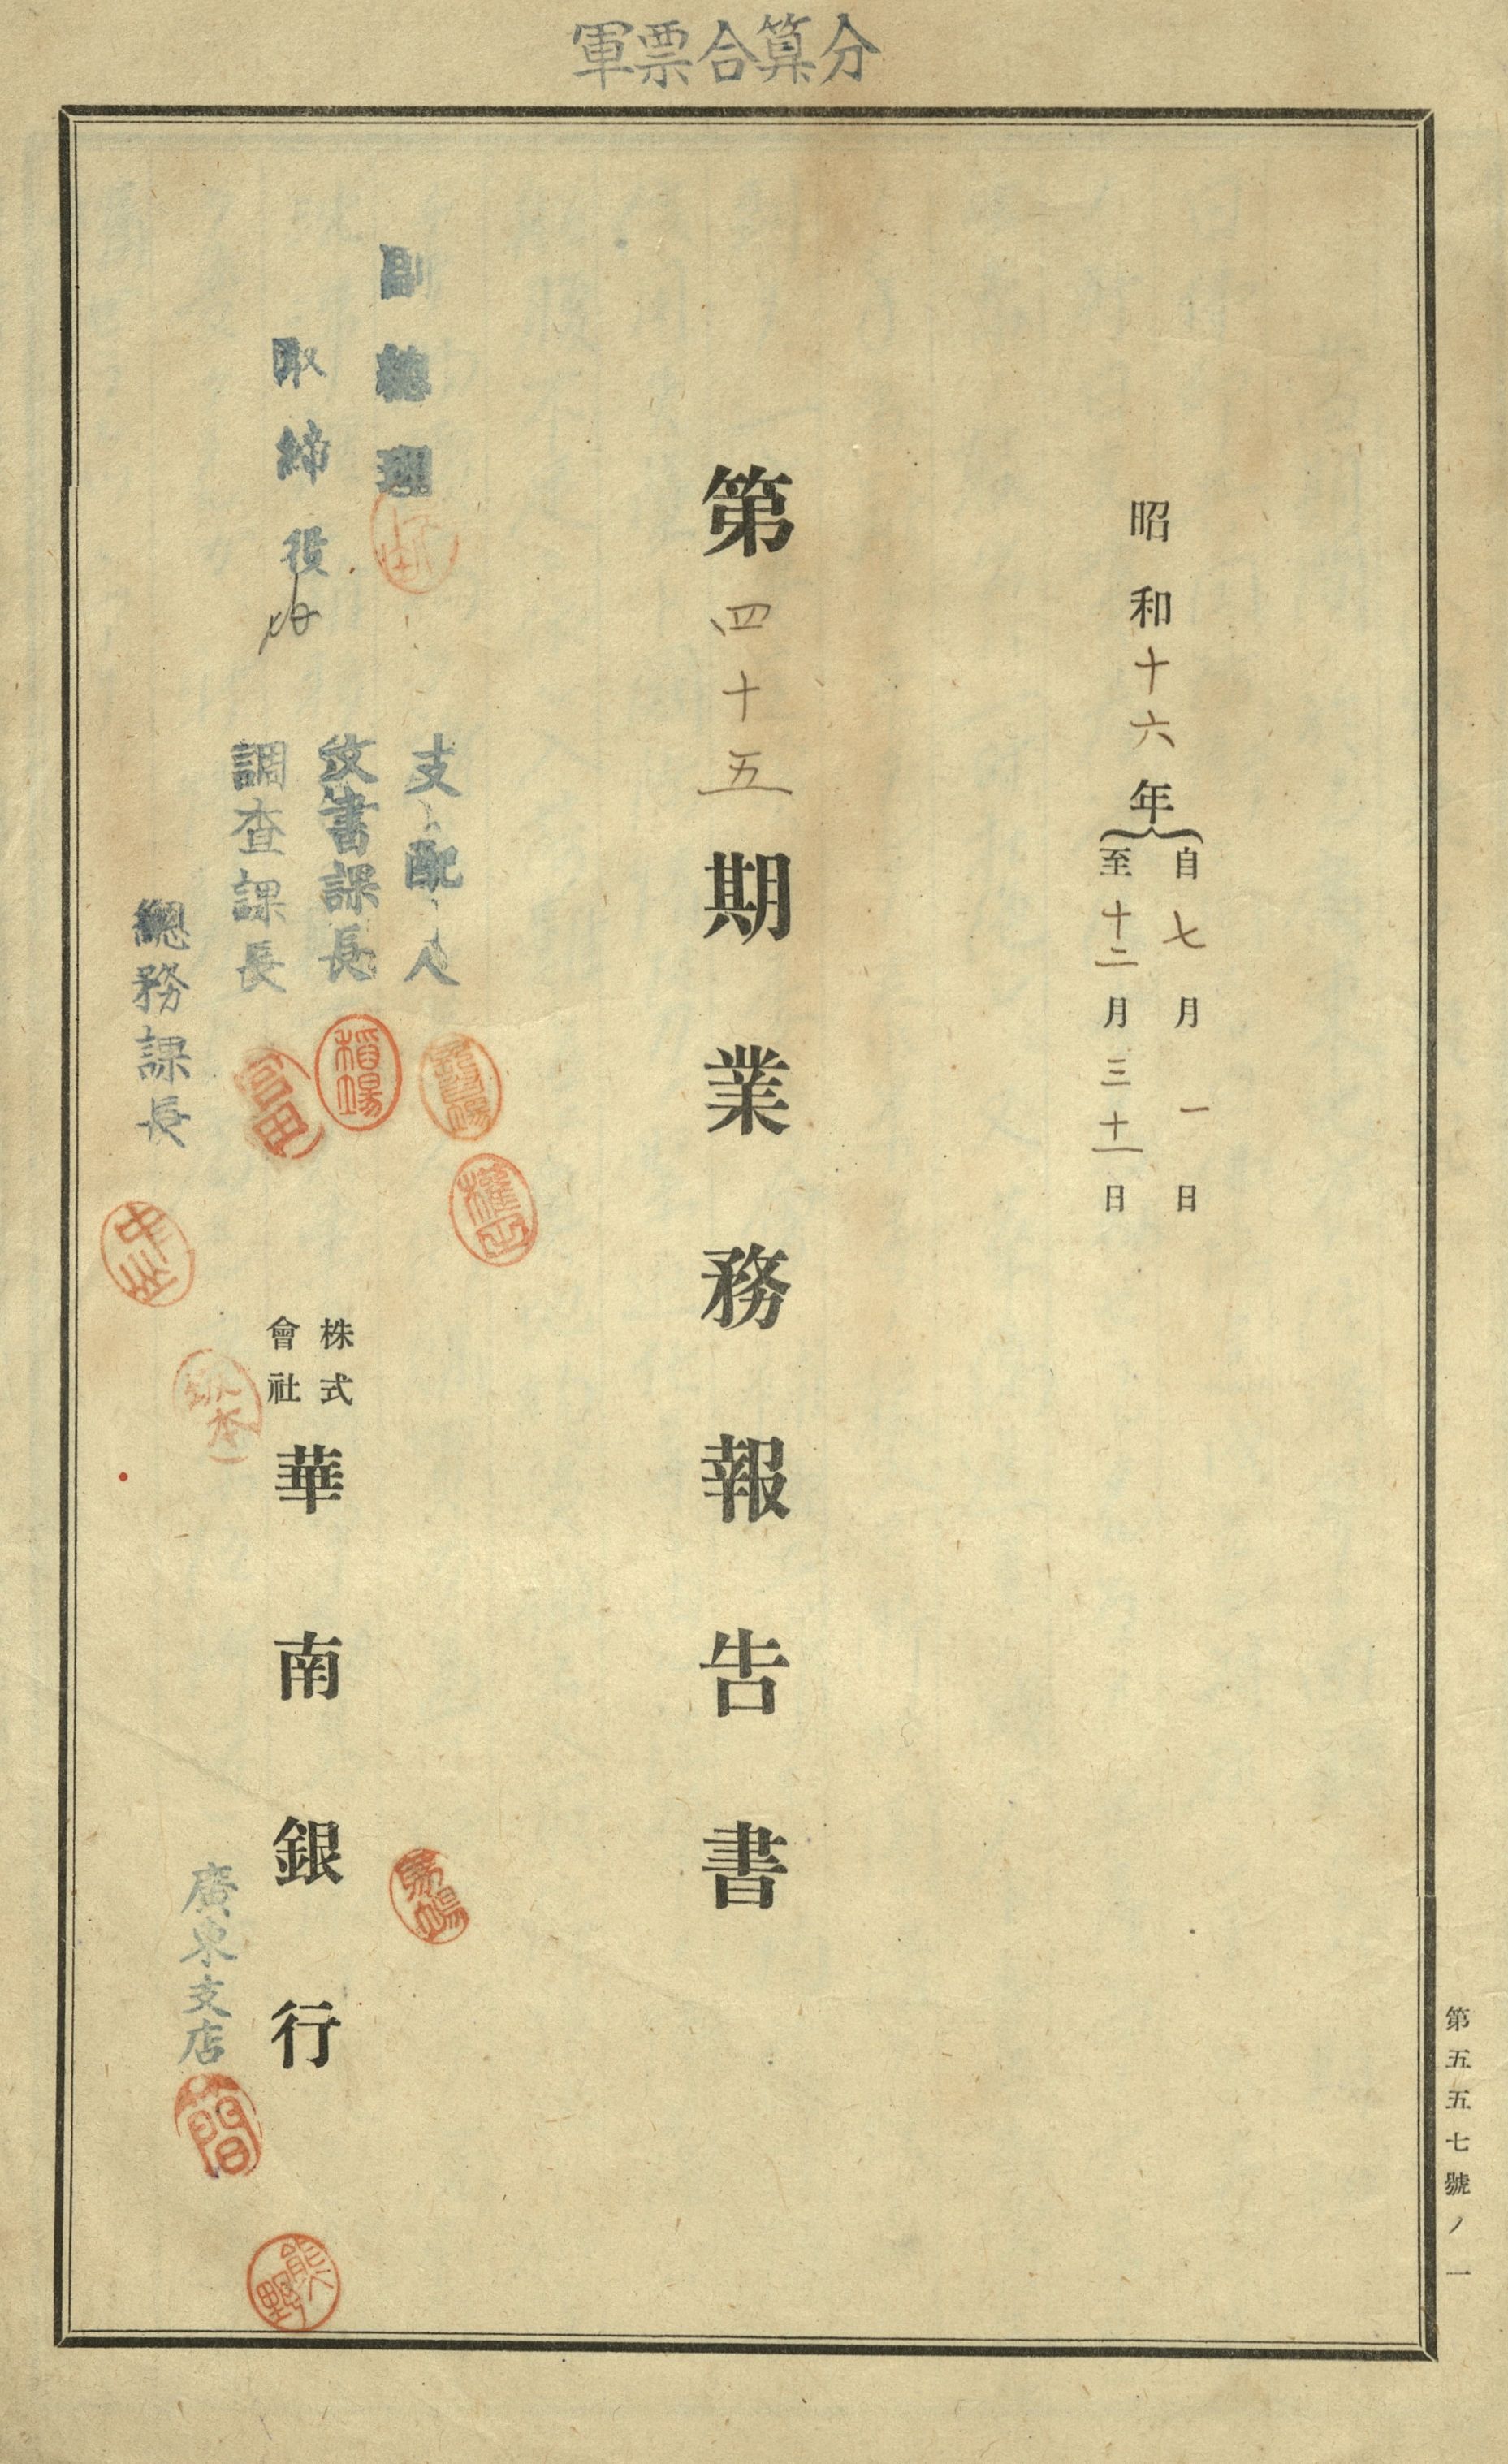 軍票合算分
昭和十六年
自七月一日
至十二月三十一日
第四十五期業務報告書
副總理
取締役
支配人
文書課長
調査課長
總務課長
稲場
權正
株式
會社
華南銀行
馬場
廣東支店
簡
熊野
第五五七號ノ一